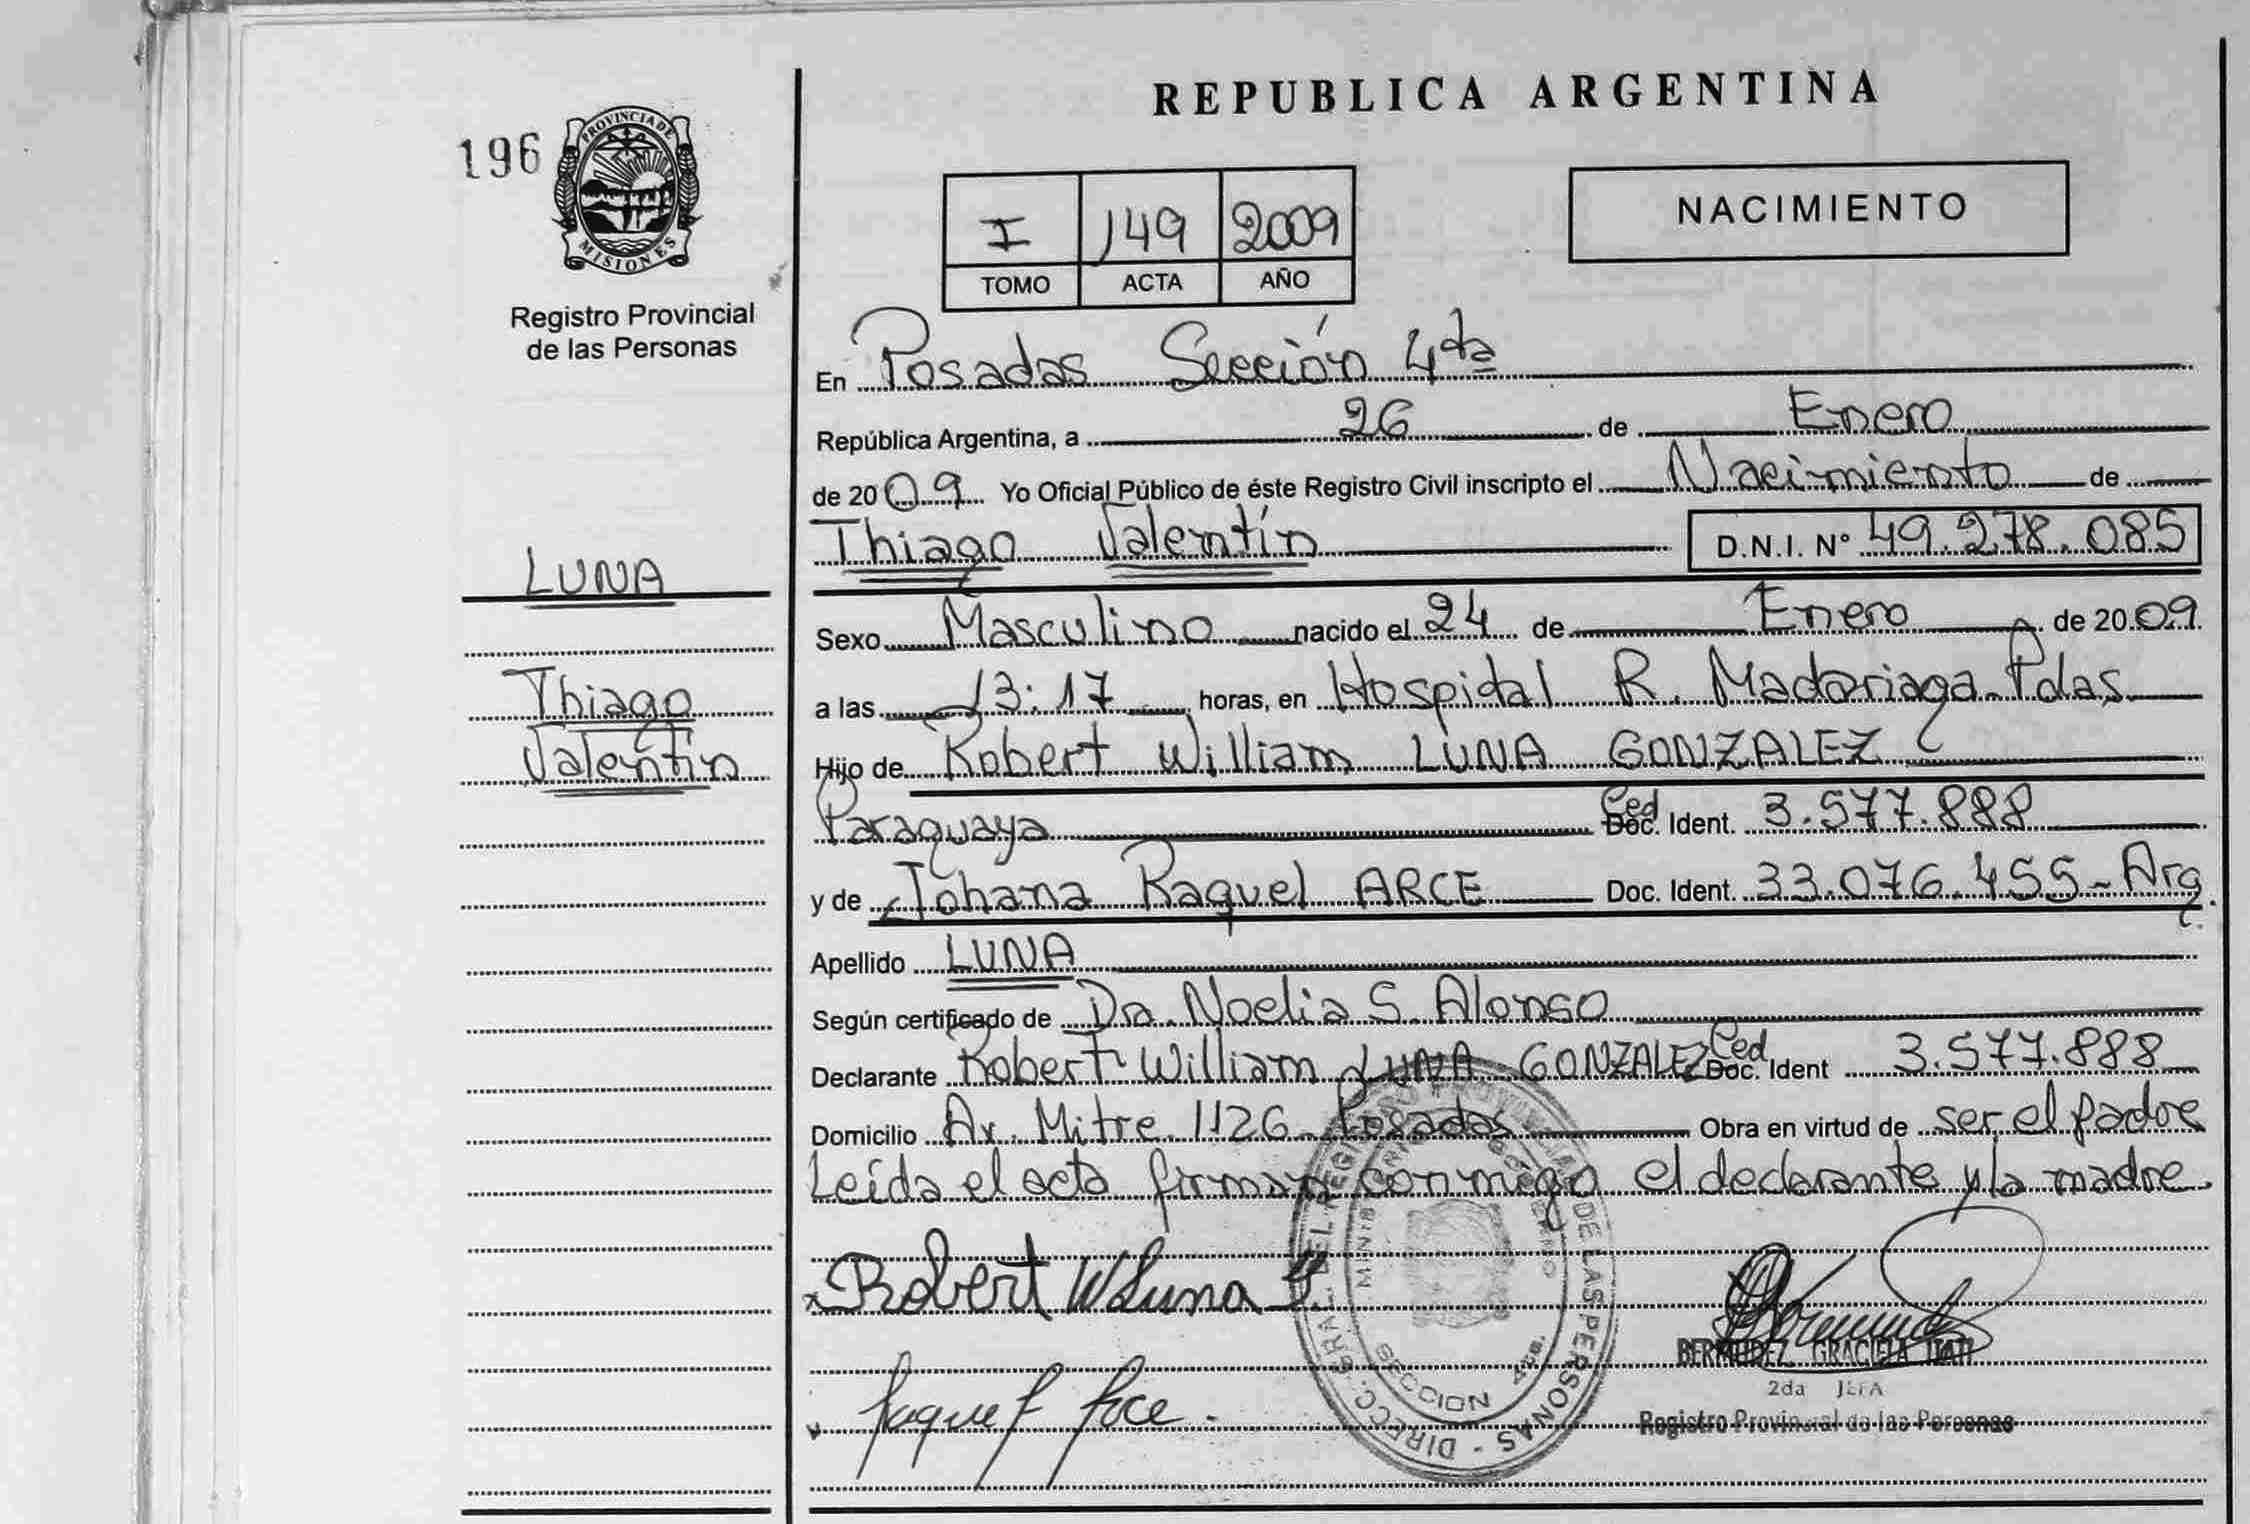 REPUBLICA ARGENTINA
196
PROVINCIA DE
MISIONES
Registro Provincial
de las Personas
I 149 2009
TOMO ACTA AÑO
NACIMIENTO
En Posadas Sección 4ta
República Argentina, a 26 de Enero
de 2009 Yo Oficial Público de éste Registro Civil inscripto el Nacimiento de
Thiago Valentín D.N.I. N° 49.278.085
LUNA
Thiago
Valentín
Sexo Masculino nacido el 24 de Enero de 2009
a las 13:17 horas, en Hospital R. Madariaga Pdas.
Hijo de Robert William LUNA GONZALEZ
Paraguaya Ced Doc. Ident. 3.577.888
y de Johana Raquel ARCE Doc. Ident. 33.076.455 - Arg.
Apellido LUNA
Según certificado de Dra. Noelia S. Alonso
Declarante Robert William LUNA GONZALEZ Ced Doc. Ident 3.577.888
Domicilio Av. Mitre 1126 Posadas Obra en virtud de ser el padre
Leída el acta firman conmigo el declarante y la madre.
Robert W Luna G.
Raquel Arce.
DIRECC. GRAL. DEL REGISTRO PROVINCIAL DE LAS PERSONAS -
SECCION 4ta.
BERMUDEZ, GRACIELA ITATI
2da JEFA
Registro Provincial de las Personas